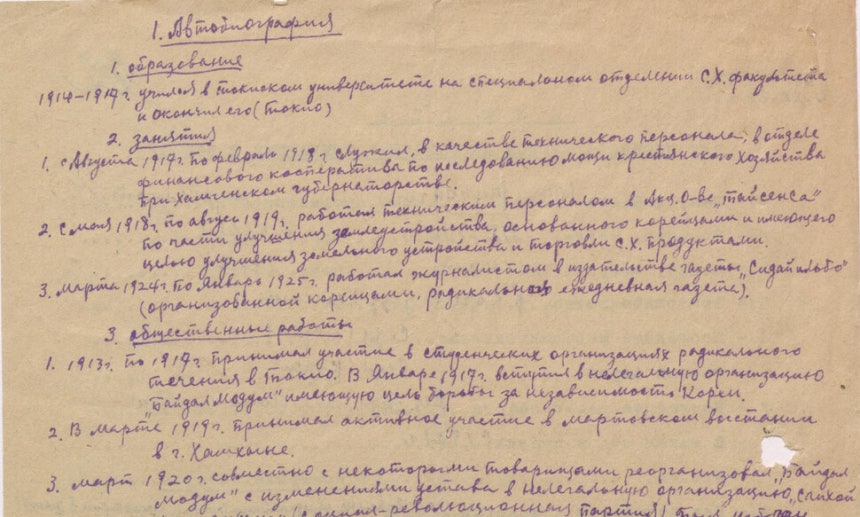 1. Автобиография
1. образование
1914-1917г. учился в токиском университете на специальном отделении С.Х. факультета
и окончил его (Токио)
2. занятия
1. с Августа 1917г. По февраль 1918г служил, в качестве технического персонала, в отделе
финансового кооператива по исследованию мощи крестьянского хозяйства
при Хамгенском губернаторстве.
2. С мая 1918г. по август 1919г. работал техническим персоналом в Акц. О-ве „Тайсенса"
по части улучшения землеустройства, основанного корейцами и имеющего
целью улучшения земельного устройства и торговли С.Х. продуктами.
3. Марта 1924г. По Январь 1925г. работал журналистом в издательстве газеты „Сидай ильбо"
(организованной корейцами, радикальная ежедневная газета).
3. общественные работы
1. 1913г. По 1917г. Принимал участие в студенческих организациях радикального
течения в Токио. В Январе 1917г. вступил в нелегальную организацию
„Байдал модум" имеющую цель борьбы за независимость Кореи.
2. В марте 1919г. Принимал активное участие в мартовском восстании
в г. Хамхоне.
3. март 1920г. совместно с некоторыми товарищами реорганизовал „Байдал
модум" с изменениями устава в нелегальную организацию „Сахой
социал-революционная партия